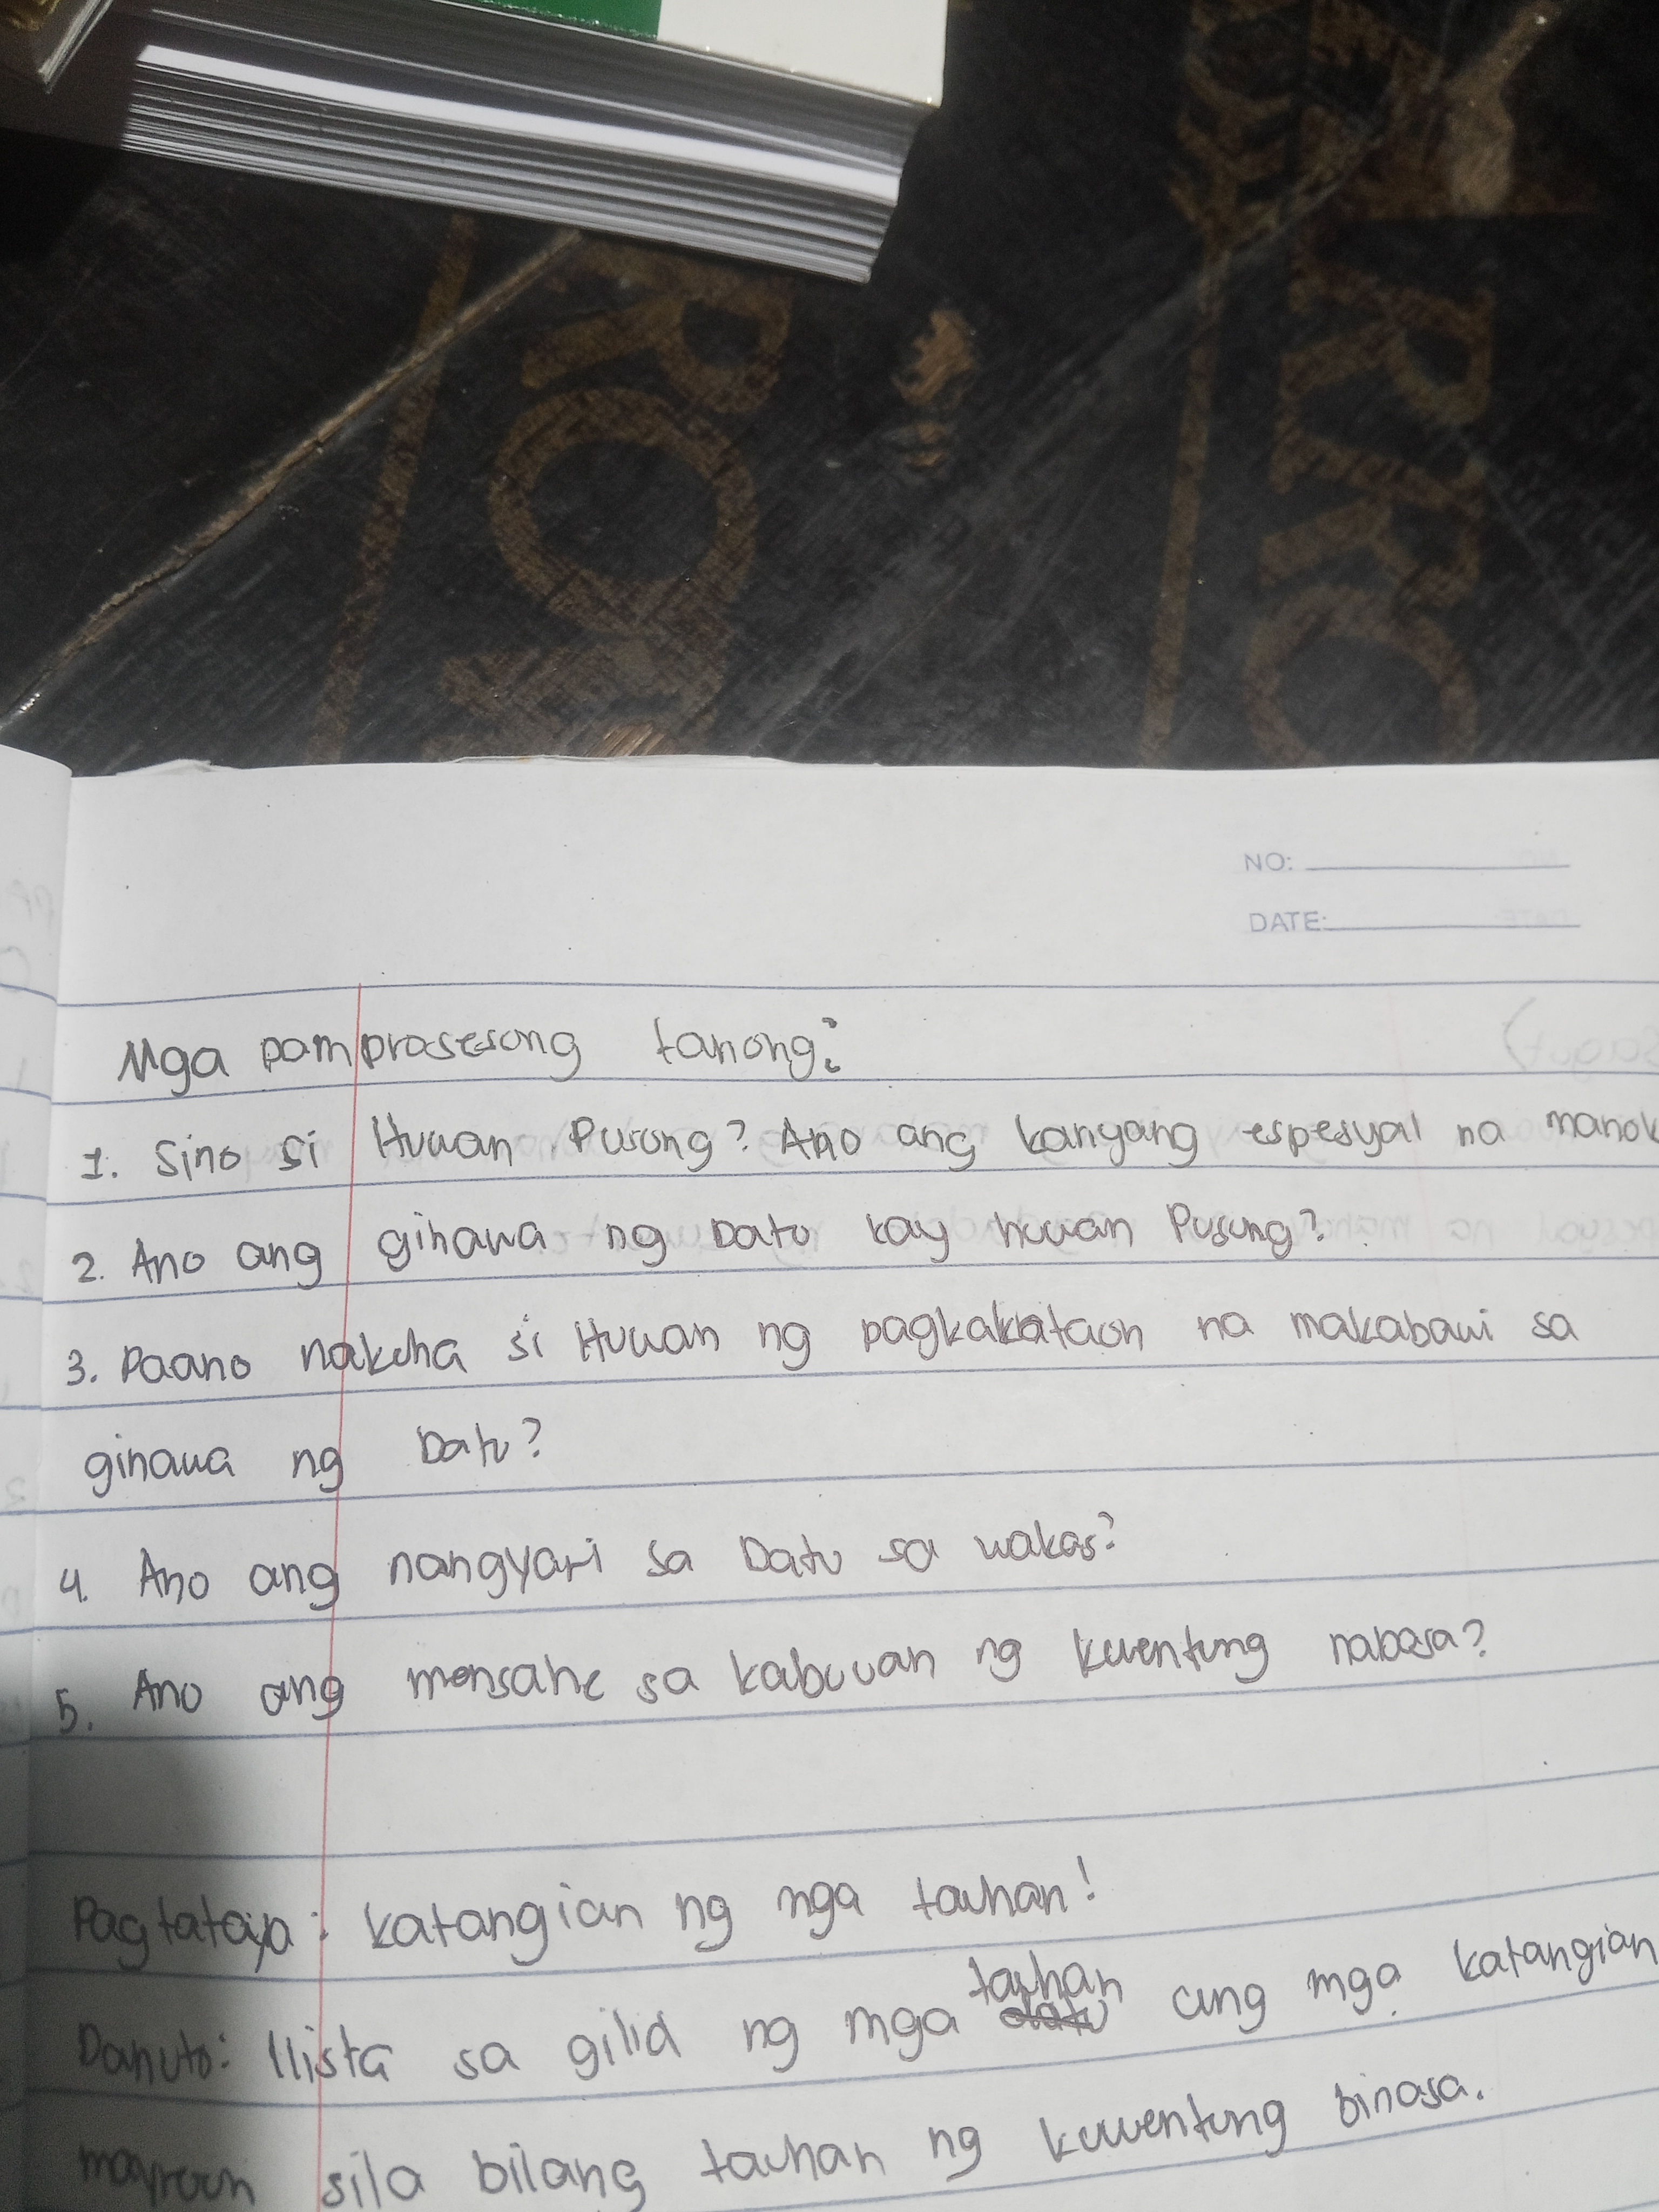 NO:
DATE:
Mga pamprosesong tanong:
1. Sino si Huwan Pusong? Ano ang kanyang espesyal na manok
2. Ano ang ginawa ng Datu kay huwan Pusong?
3. Paano nakuha si Huwan ng pagkakataon na makabawi sa
ginawa ng Datu?
4. Ano ang nangyari sa Datu sa wakas?
5. Ano ang mensahe sa kabuuan ng kwentong nabasa?
Pagtataya: Katangian ng mga tauhan!
Panuto: Ilista sa gilid ng mga tauhan ang mga katangian
mayroon sila bilang tauhan ng kuwentong binasa.